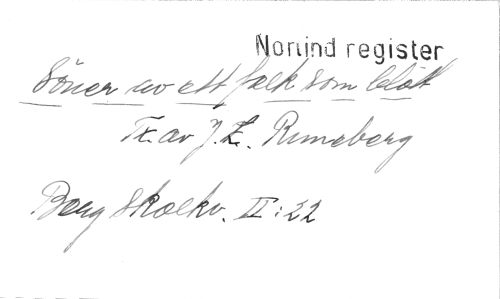 Norlind register
Söner av ett folk som blött
Tx. av J. L. Runeberg
Berg Skolkv. II: 22